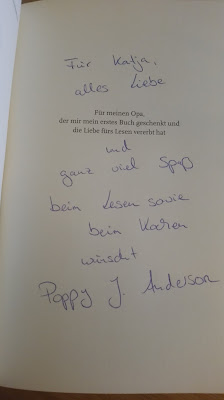 Für Katja,
alles Liebe
Für meinen Opa,
der mir mein erstes Buch geschenkt und
die Liebe fürs Lesen vererbt hat
und
ganz viel Spaß
beim Lesen sowie
beim Kochen
wünscht
Poppy J. Anderson